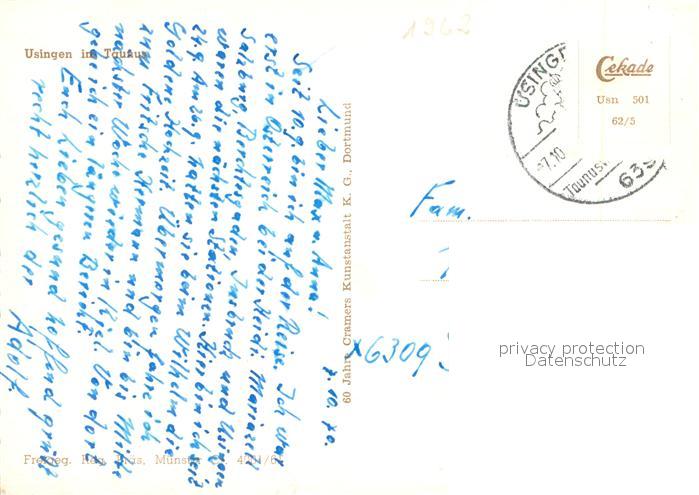 Usingen im Taunus
1962
Cekade
Usn 501
62/5
USINGE
7.10
Taunus
639
7.10.70.
Lieber Max u. Anna!
Seit 10.9. bin ich auf der Reise. Ich war
erst in Österreich bei der Heidi. Mariazell
Salzburg, Berchtesgaden, Insbruck und Usingen
waren die nächsten Stationen. Hier bin ich seit
24.9. Am 26.9. hatten sie beim Wilhelm die
Goldene Hochzeit. Übermorgen fahre ich
zum Fritsche Hermann und bin bis Mitte
nächster Woche wieder in Kiel. Von dort
geb ich ein längeren Bericht.
Euch Lieben gesund hoffend grüßt
recht herzlich der Adolf.
60 Jahre Cramers Kunstanstalt K. G., Dortmund
Fam.
x6309
privacy protection
Datenschutz
Freigeg. Reg. Präs. Münster